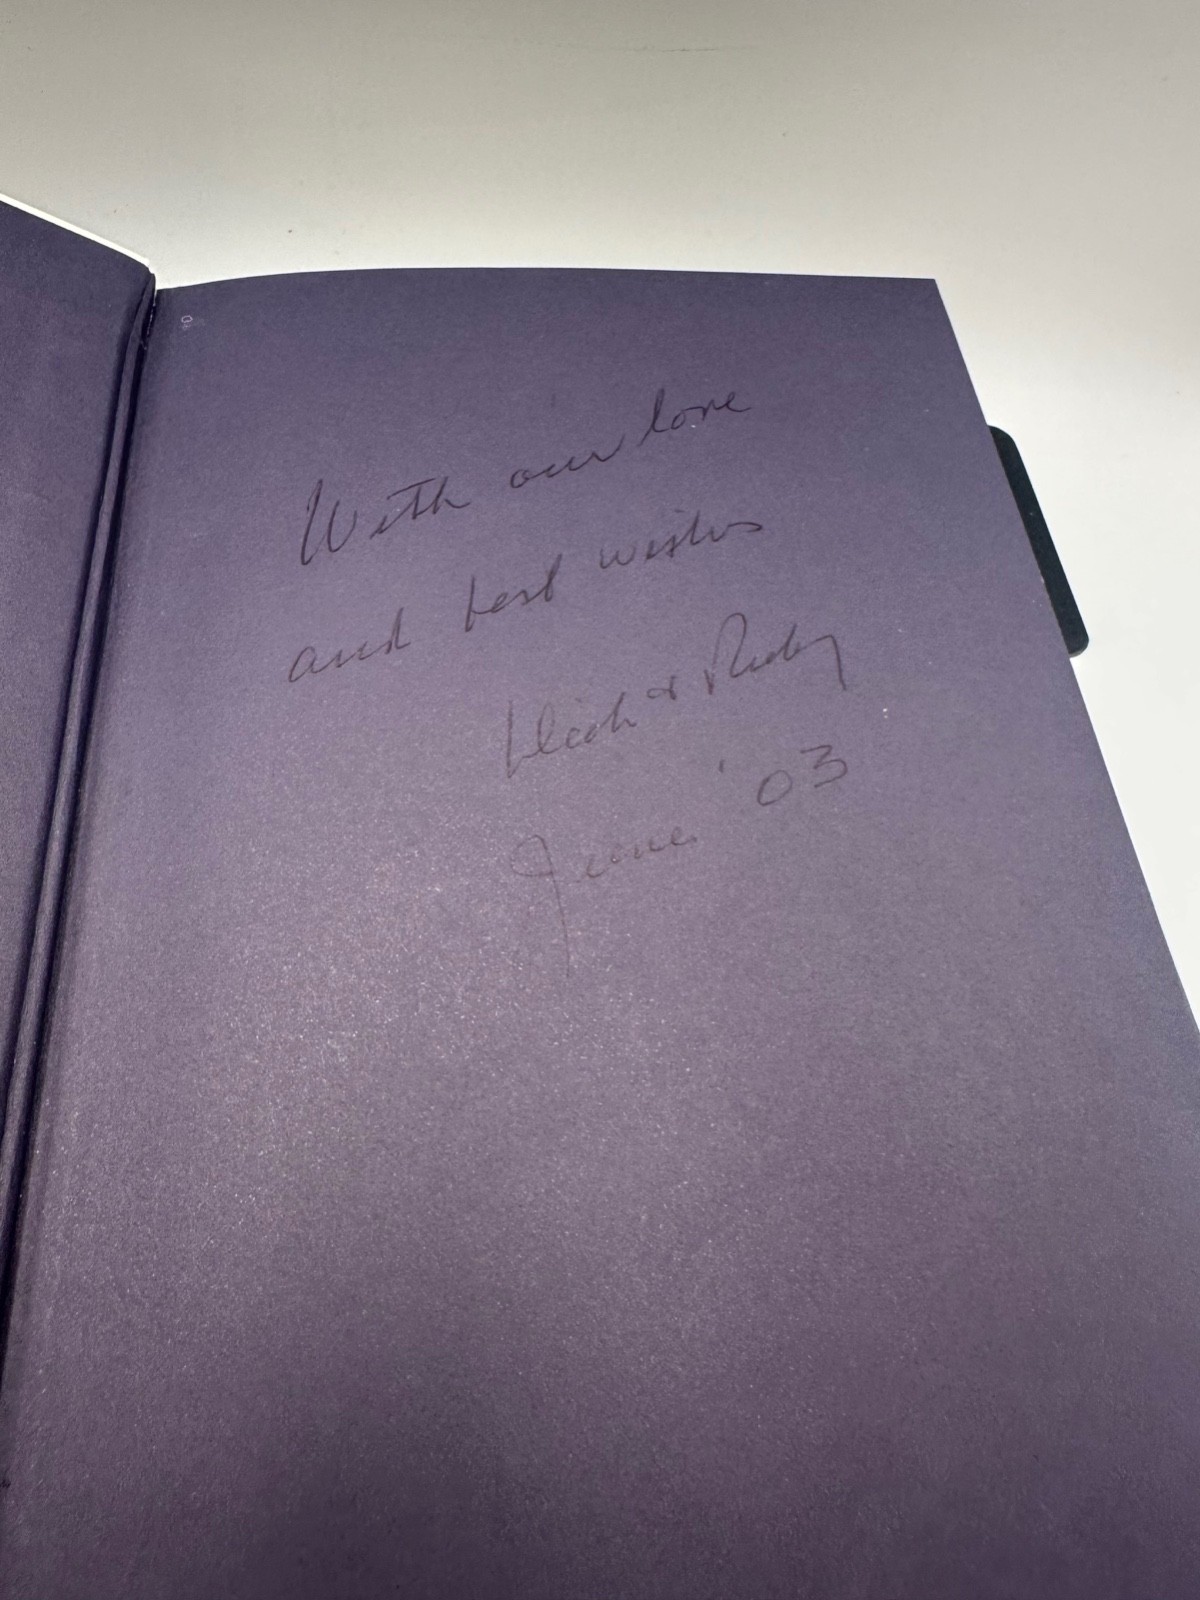 With our love
and best wishes
& Rudy
June '03